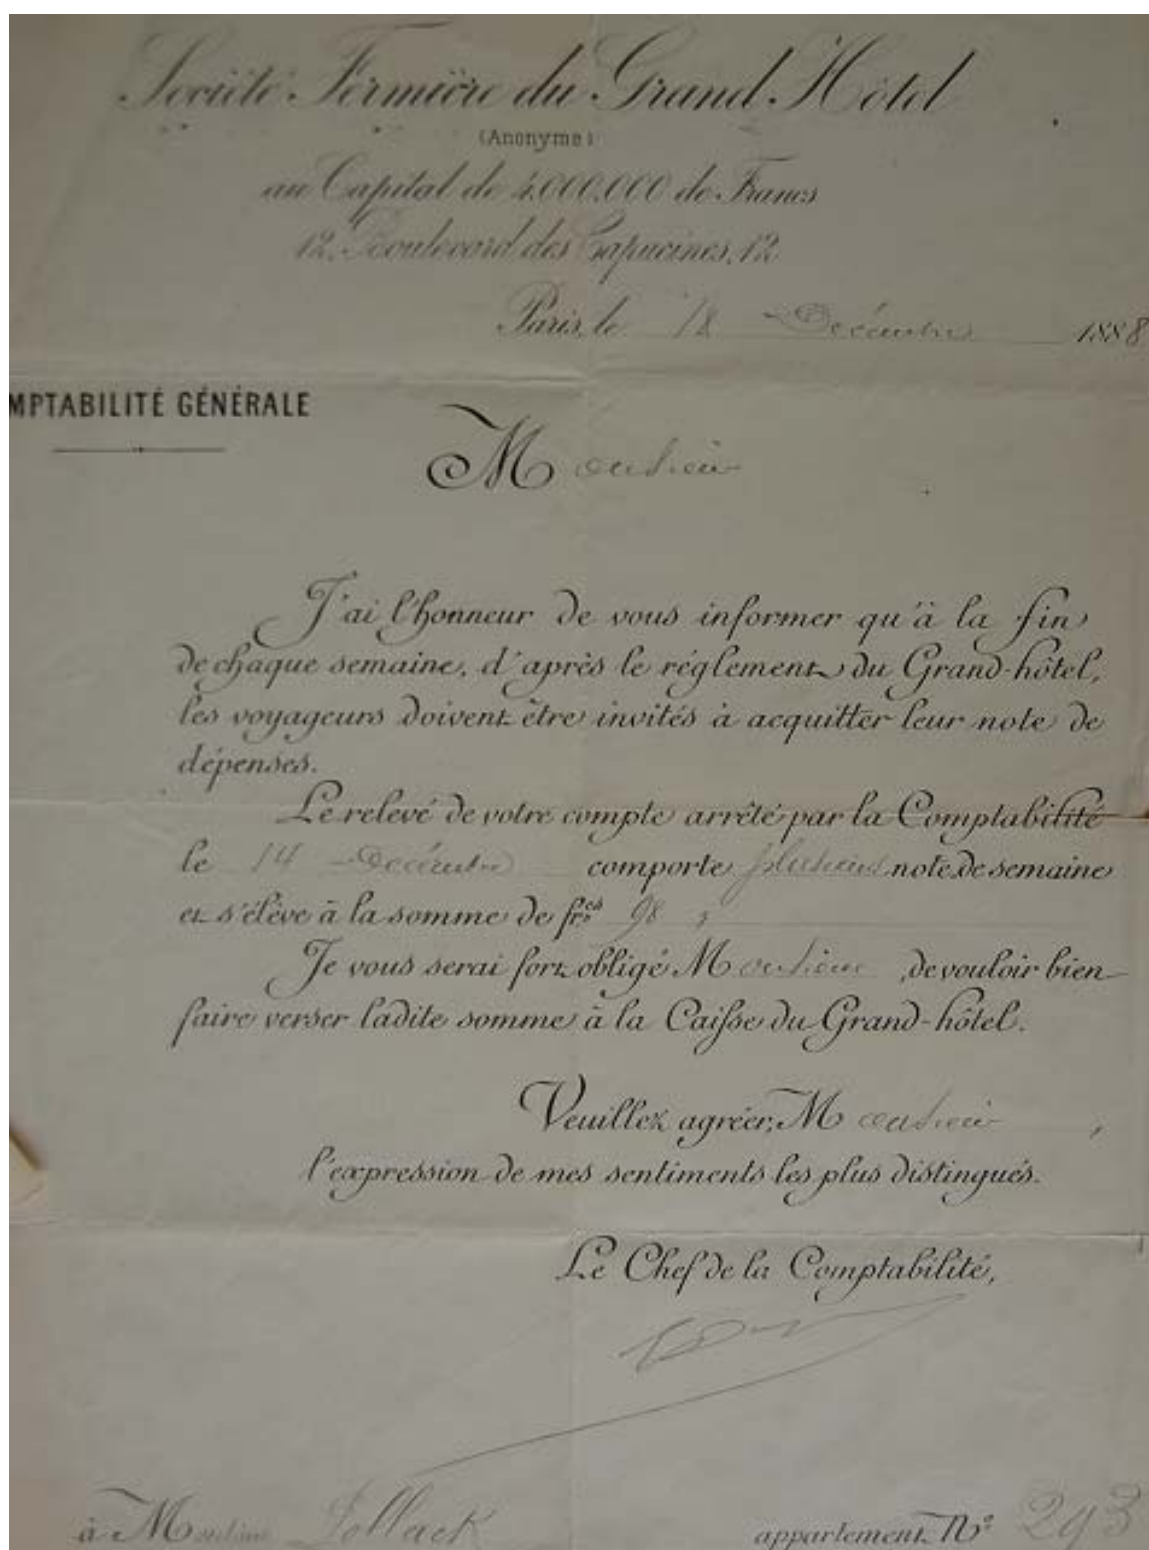 Société Fermière du Grand Hôtel
(Anonyme)
au Capital de 4.000.000 de Francs
12, Boulevard des Capucines, 12
Paris, le 18 Décembre 1888
MPTABILITÉ GÉNÉRALE
Monsieur
J'ai l'honneur de vous informer qu'à la fin
de chaque semaine, d'après le réglement du Grand-hôtel,
les voyageurs doivent être invités à acquitter leur note de
dépenses.
Le relevé de votre compte arrêté par la Comptabilité
le 14 Décembre comporte plusieurs note de semaine
et s'élève à la somme de frcs 98
Je vous serai fort obligé Monsieur, de vouloir bien
faire verser ladite somme à la Caisse du Grand-hôtel.
Veuillez agréer, Monsieur,
l'expression de mes sentiments les plus distingués.
Le Chef de la Comptabilité,
à Monsieur appartement No 293